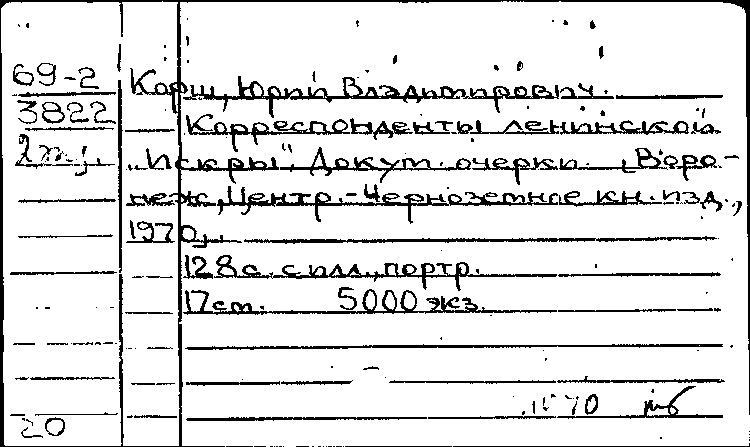 69-2 Корш, Юрий Владимирович.
3822 Корреспонденты ленинской
"Искры". Докум. очерки. Воро-
неж, Центр.-Черноземное кн. изд.,
1970.
128 с. с илл., портр.
17 см. 5000 экз.
70
20